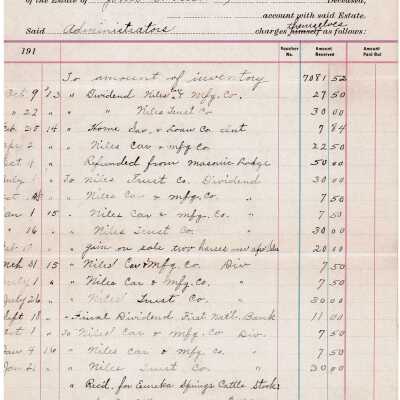 of the Estate of Deceased,
account with said Estate.
Said Administrators charges himself themselves as follows:
191 Voucher No. Amount Received Amount Paid Out
To amount of inventory 7081 52
Oct 9 '13 " Dividend Niles Mfg. Co. 27 50
" 22 " " Niles Trust Co 30 00
Feb 25 14 " Home Sav. & Loan Co. int 7 84
2 " Niles Car & Mfg Co. 22 50
Refunded from Masonic Lodge 50 00
July 1 To Niles Trust Co. Dividend 30 00
" Niles Car & Mfg Co. " 7 50
Jan 1 15 " Niles Car & Mfg. Co. " 7 50
" 16 " Niles Trust Co. " 30 00
" on sale two horses 20 00
Mch 31 15 " Niles Car & Mfg. Co. Div 7 50
July 1 " Niles Car & Mfg. Co. " 7 50
July 26 " Niles Trust Co. " 30 00
Sept 18 " Final Dividend First Natl. Bank 11 00
Oct 1 To Niles Car & Mfg Co Div. 7 50
Jan 4 16 " Niles Car & Mfg Co. " 7 50
Jan 21 " Niles Trust Co. " 30 00
" Recd. for Eureka Springs Cattle Stock